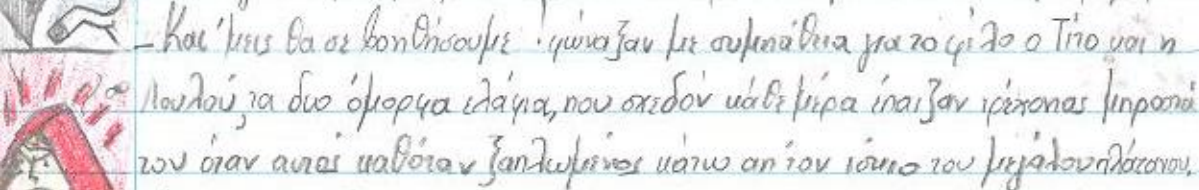 - Και 'μεις θα σε βοηθήσουμε! φώναξαν με συμπάθεια για το φίλο ο Τίτο και η
Λουλού, τα δυο όμορφα ελάφια, που σχεδόν κάθε μέρα έπαιζαν τρέχοντας μπροστά
του όταν αυτός καθόταν ξαπλωμένος κάτω απ' τον ίσκιο του μεγάλου πλάτανου.